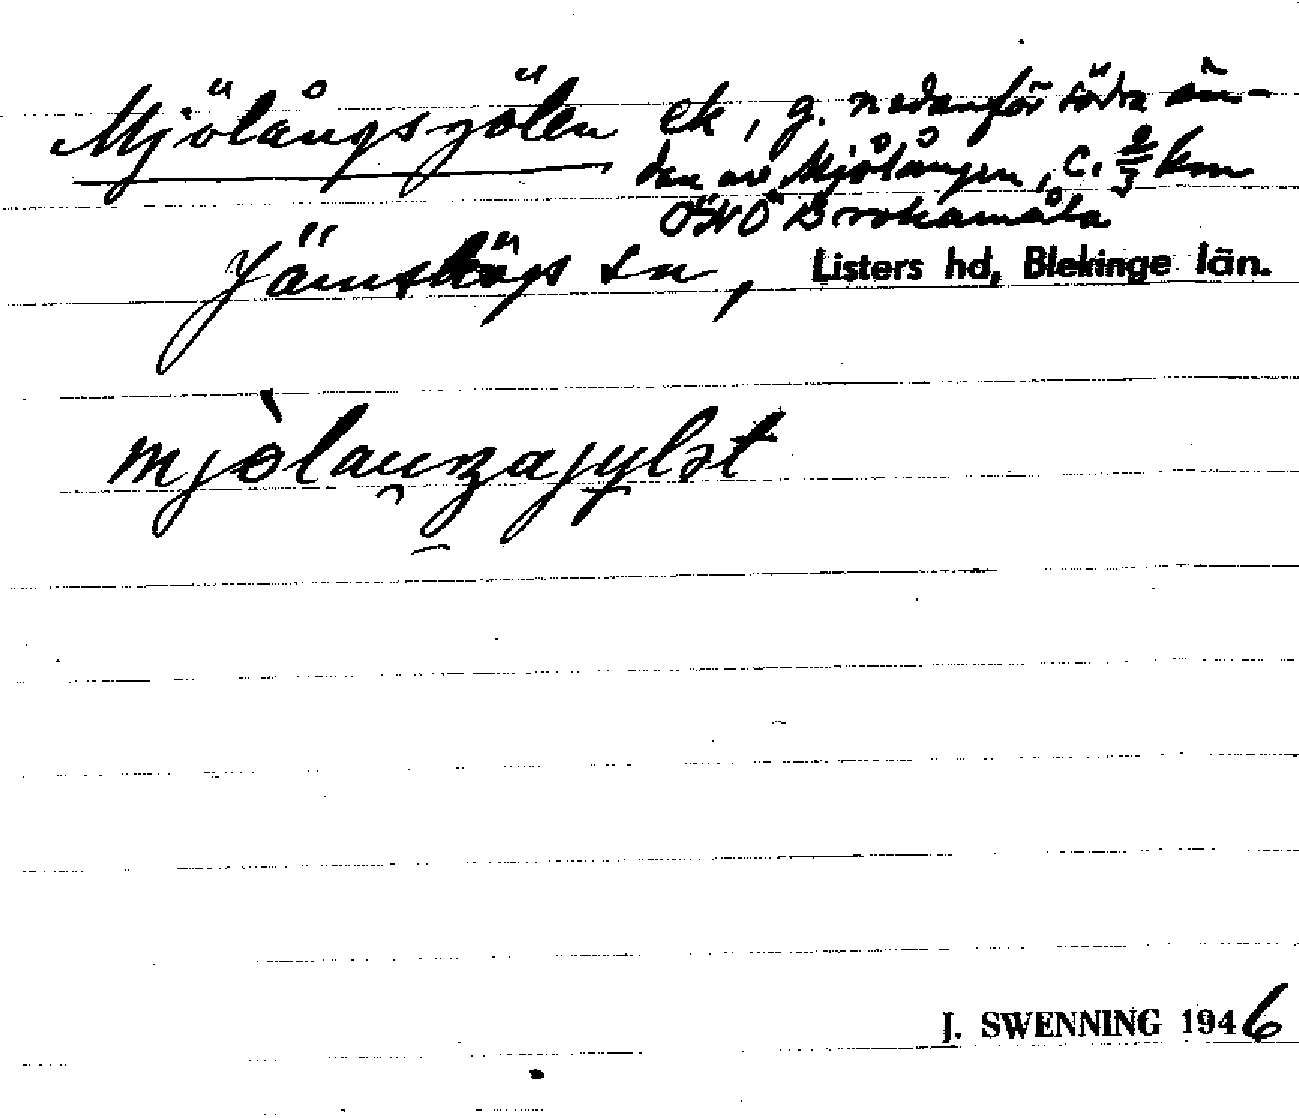 Mjölångsgölen ek, g. nedanför södra än-
den av Mjölången, c. 2/3 km
OSO Brokamåla
Jämshögs sn, Listers hd, Blekinge län.
J. SWENNING 1946